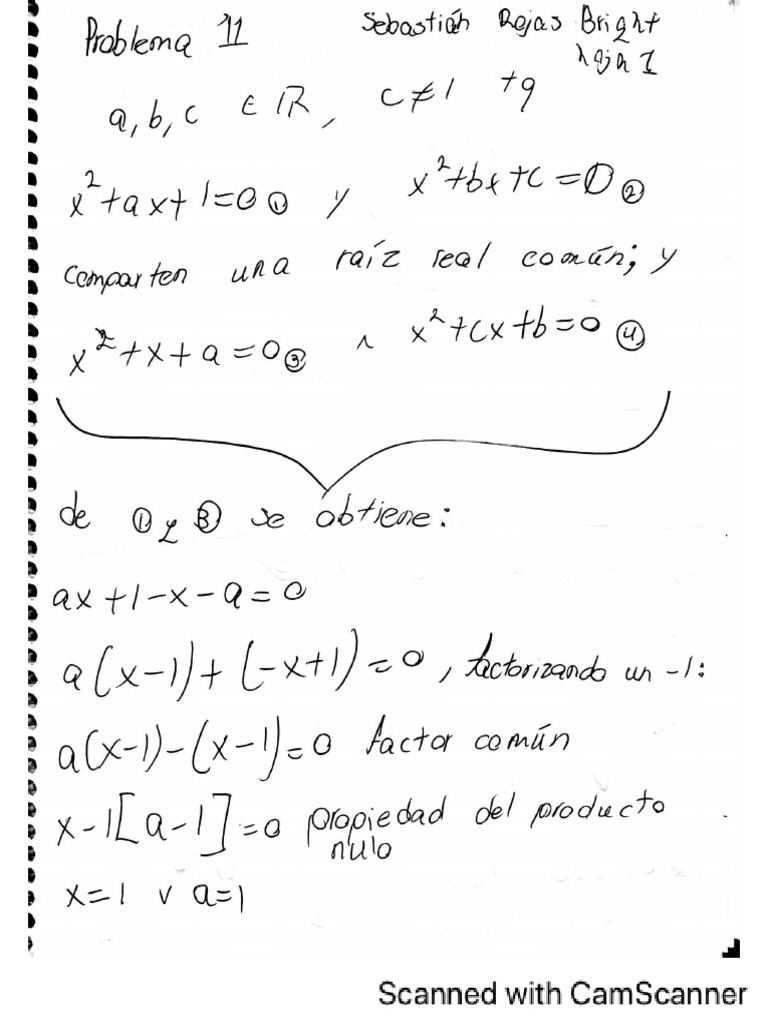 Problema 11 Sebastián Rojas Bright
hoja 1
a, b, c ∈ ℝ, c ≠ 1 tq
x²+ax+1=0 ① y x²+bx+c=0 ②
comparten una raíz real común; y
x²+x+a=0 ③ ∧ x²+cx+b=0 ④
de ① y ③ se obtiene:
ax+1-x-a=0
a(x-1)+(-x+1)=0, factorizando un -1:
a(x-1)-(x-1)=0 factor común
x-1[a-1]=0 propiedad del producto
nulo
x=1 ∨ a=1
Scanned with CamScanner